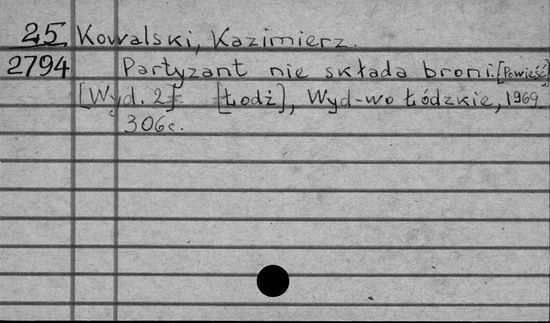 25 Kowalski, Kazimierz.
2794 Partyzant nie składa broni. [Powieść]
[Wyd. 2] [Łodź], Wyd-wo Łódzkie, 1969.
306с.